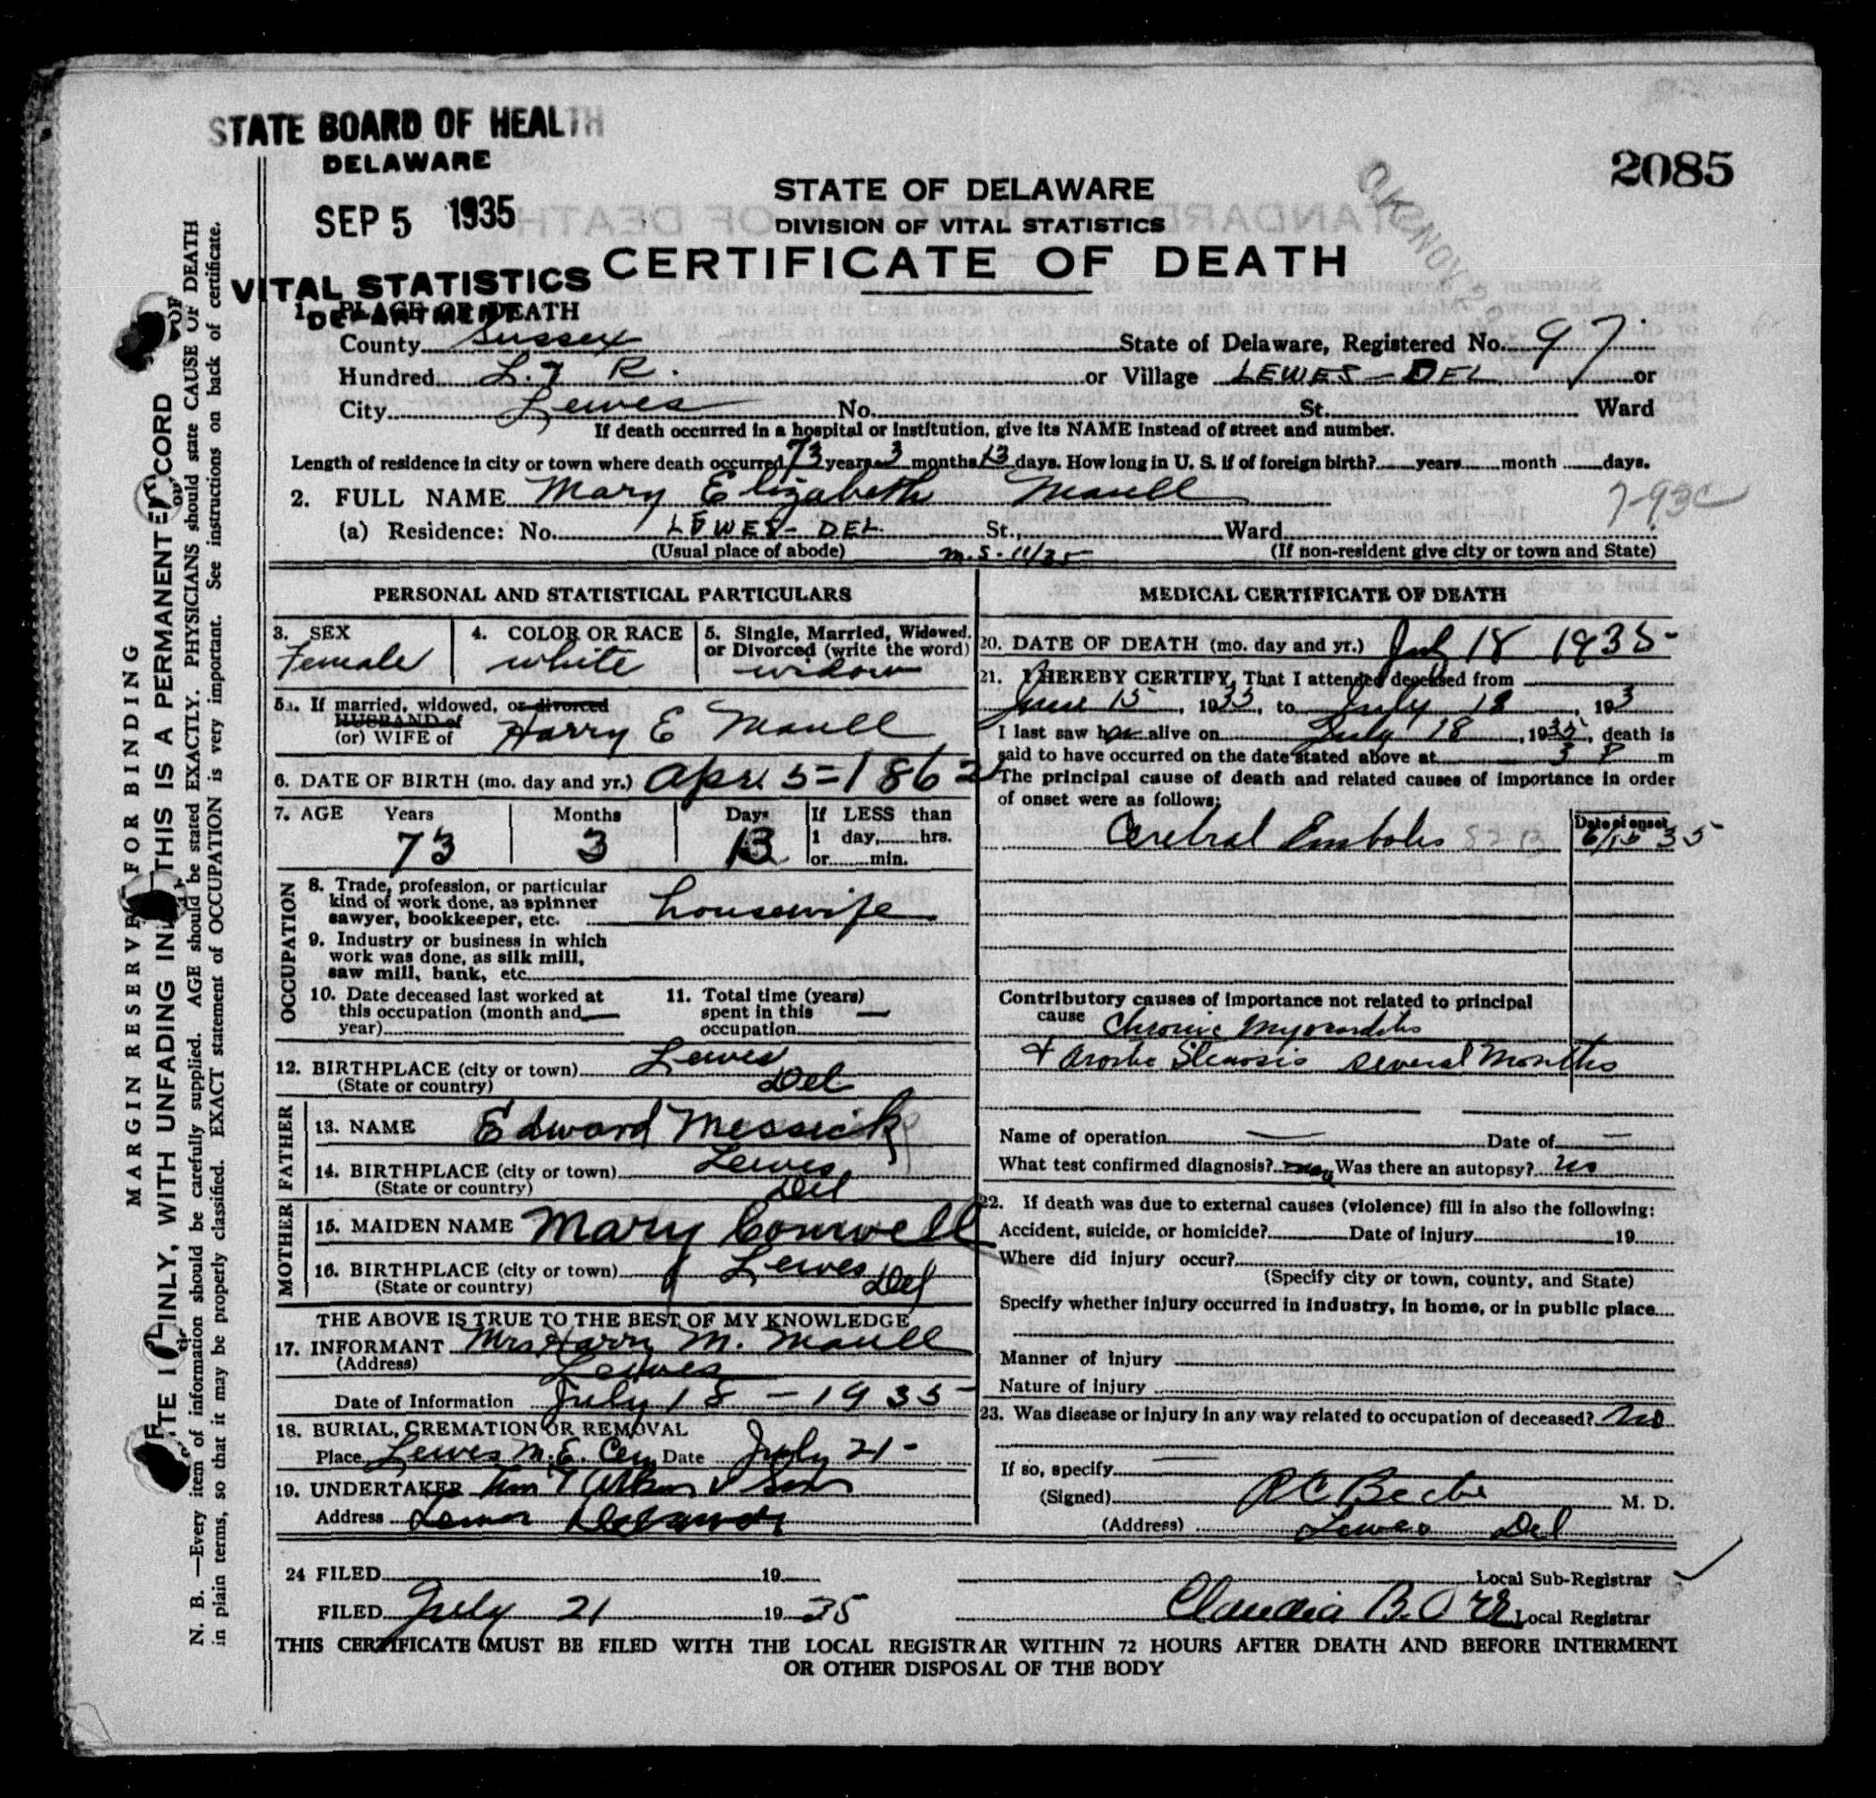 STATE BOARD OF HEALTH
DELAWARE
SEP 5 1935
VITAL STATISTICS
DEPARTMENT
2085
STATE OF DELAWARE
DIVISION OF VITAL STATISTICS
CERTIFICATE OF DEATH
1. PLACE OF DEATH
County Sussex State of Delaware, Registered No. 97
Hundred L. & R. or Village LEWES - DEL or
City Lewes No. St. Ward
If death occurred in a hospital or institution, give its NAME instead of street and number.
Length of residence in city or town where death occurred 73 years 3 months 13 days. How long in U. S. if of foreign birth? years month days.
2. FULL NAME Mary Elizabeth Maull
7-93c
(a) Residence: No. LEWES - DEL St., Ward
(Usual place of abode) m.s. 11/35 (If non-resident give city or town and State)
PERSONAL AND STATISTICAL PARTICULARS
3. SEX
Female
4. COLOR OR RACE
white
5. Single, Married, Widowed,
or Divorced (write the word)
widow
5a. If married, widowed, or divorced
HUSBAND of
(or) WIFE of Harry E Maull
6. DATE OF BIRTH (mo. day and yr.) Apr. 5 = 1862
7. AGE Years Months Days If LESS than
73 3 13 1 day, hrs.
or min.
OCCUPATION
8. Trade, profession, or particular
kind of work done, as spinner
sawyer, bookkeeper, etc. housewife
9. Industry or business in which
work was done, as silk mill,
saw mill, bank, etc.
10. Date deceased last worked at
this occupation (month and
year)
11. Total time (years)
spent in this
occupation
12. BIRTHPLACE (city or town) Lewes
(State or country) Del
FATHER
13. NAME Edward Messick
14. BIRTHPLACE (city or town) Lewes
(State or country) Del
MOTHER
15. MAIDEN NAME Mary Conwell
16. BIRTHPLACE (city or town) Lewes
(State or country) Del
THE ABOVE IS TRUE TO THE BEST OF MY KNOWLEDGE
17. INFORMANT Mrs Harry M. Maull
(Address) Lewes
Date of Information July 18 - 1935
18. BURIAL, CREMATION OR REMOVAL
Place Lewes M. E. Cem Date July 21 -
19. UNDERTAKER
Address
MEDICAL CERTIFICATE OF DEATH
20. DATE OF DEATH (mo. day and yr.) July 18 1935
21. I HEREBY CERTIFY, That I attended deceased from
June 15, 1935, to July 18, 193
I last saw her alive on July 18, 1935, death is
said to have occurred on the date stated above at 3 P m
The principal cause of death and related causes of importance in order
of onset were as follows:
Date of onset
Cerebral Embolis 82 B 6/15 35
Contributory causes of importance not related to principal
cause Chronic Myocarditis
+ Aortic Stenosis several months
Name of operation — Date of —
What test confirmed diagnosis? Was there an autopsy? no
22. If death was due to external causes (violence) fill in also the following:
Accident, suicide, or homicide? Date of injury 19
Where did injury occur?
(Specify city or town, county, and State)
Specify whether injury occurred in industry, in home, or in public place
Manner of injury
Nature of injury
23. Was disease or injury in any way related to occupation of deceased? no
If so, specify —
(Signed) M. D.
(Address) Lewes Del
24 FILED 19 Local Sub-Registrar
FILED July 21 19 35 Claudia B. Orr Local Registrar
THIS CERTIFICATE MUST BE FILED WITH THE LOCAL REGISTRAR WITHIN 72 HOURS AFTER DEATH AND BEFORE INTERMENT
OR OTHER DISPOSAL OF THE BODY
MARGIN RESERVED FOR BINDING
INLY, WITH UNFADING INK THIS IS A PERMANENT RECORD
N. B. —Every item of information should be carefully supplied. AGE should be stated EXACTLY. PHYSICIANS should state CAUSE OF DEATH
in plain terms, so that it may be properly classified. EXACT statement of OCCUPATION is very important. See instructions on back of certificate.